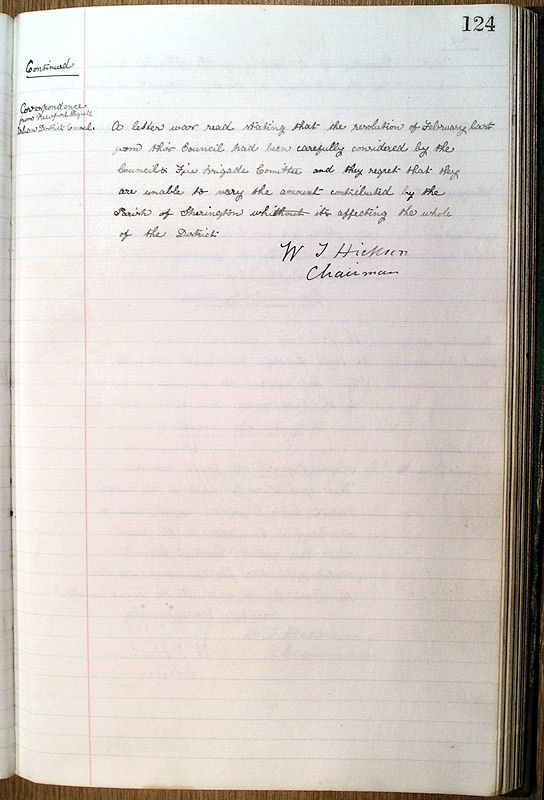 124
Continued
Correspondence
from Newport Pagnell
Urban District Council.
A letter was read stating that the resolution of February last
from this Council had been carefully considered by the
Councils Fire Brigade Comittee and they regret that they
are unable to vary the amount contributed by the
Parish of Sherington whithout its affecting the whole
of the District
W J Hickson
Chairman